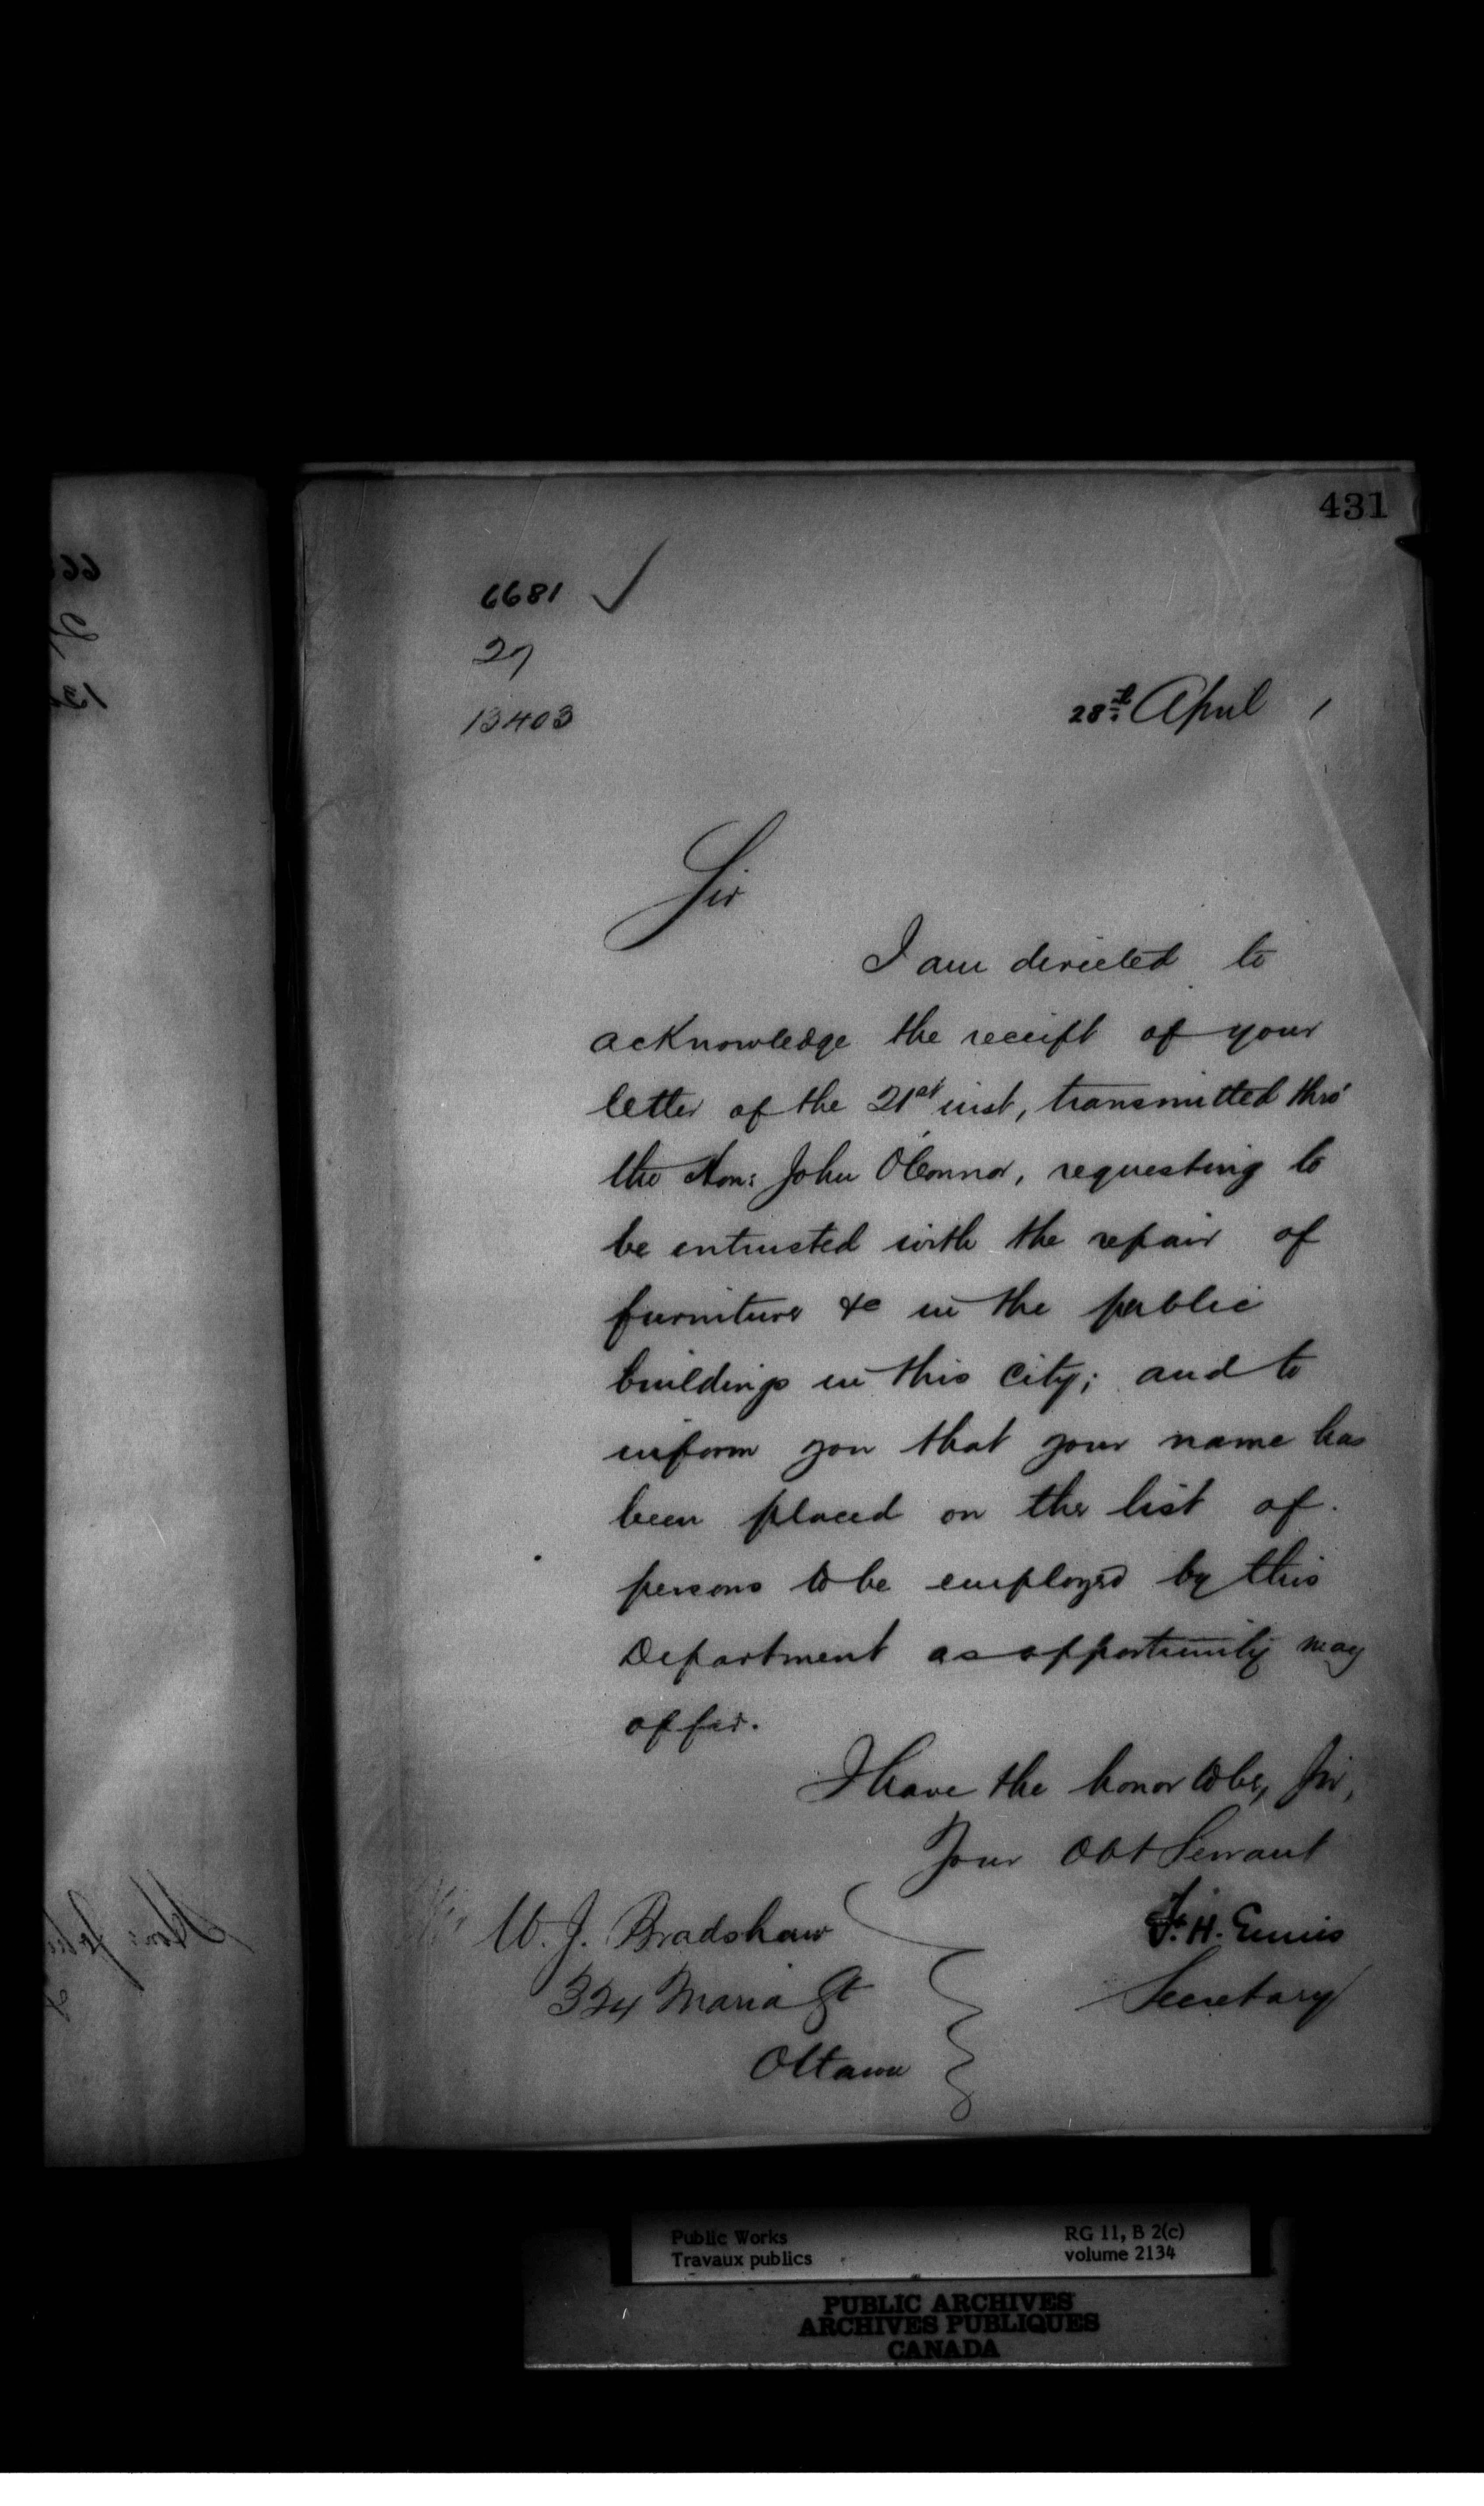 431
6681 ✓
27
13403
28th April 1
Sir
I am directed to
acknowledge the receipt of your
letter of the 21st inst, transmitted thro'
the Hon: John O'Connor, requesting to
be entrusted with the repair of
furniture &c in the public
buildings in this city; and to
inform you that your name has
been placed on the list of
persons to be employed by this
Department as opportunity may
offer.
I have the honor to be, Sir,
Your Obt Servant
F. H. Ennis
Secretary
W. J. Bradshaw
324 Maria St
Ottawa
Public Works
Travaux publics
RG 11, B 2(c)
volume 2134
PUBLIC ARCHIVES
ARCHIVES PUBLIQUES
CANADA